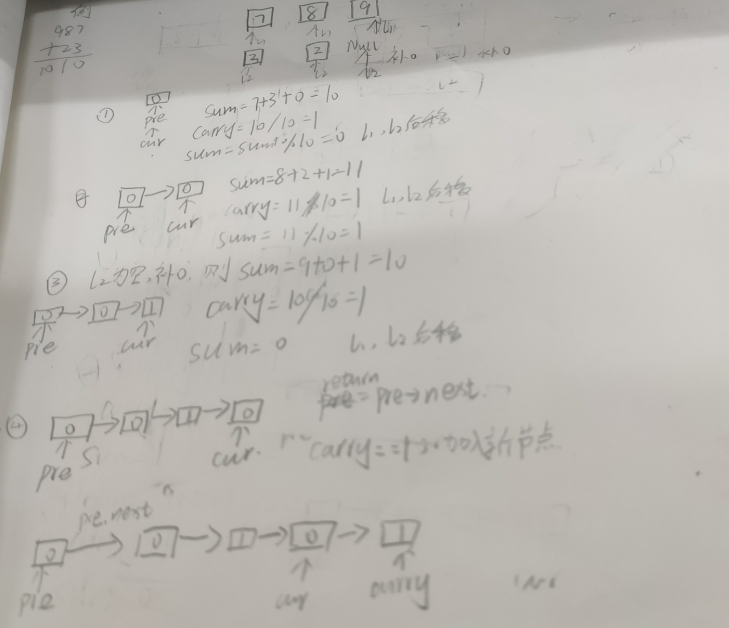 例
987
+23
1010
7 8 9
↑L1 ↑L1 ↑L1
3 2 Null 补0
↑L2 ↑L2 ↑L2
① 0 sum=7+3+0=10
pre carry=10/10=1
cur sum=sum%10=0 L1,L2后移
② 0→0 sum=8+2+1=11
pre cur carry=11/10=1 L1,L2后移
sum=11%10=1
③ L2为空,补0,则sum=9+0+1=10
0→0→1 carry=10/10=1
pre cur sum=0 L1,L2后移
return
④ 0→0→1→0 pre→next
pre cur carry==1 加入新节点
pre.next
0→0→1→0→1
pre cur carry